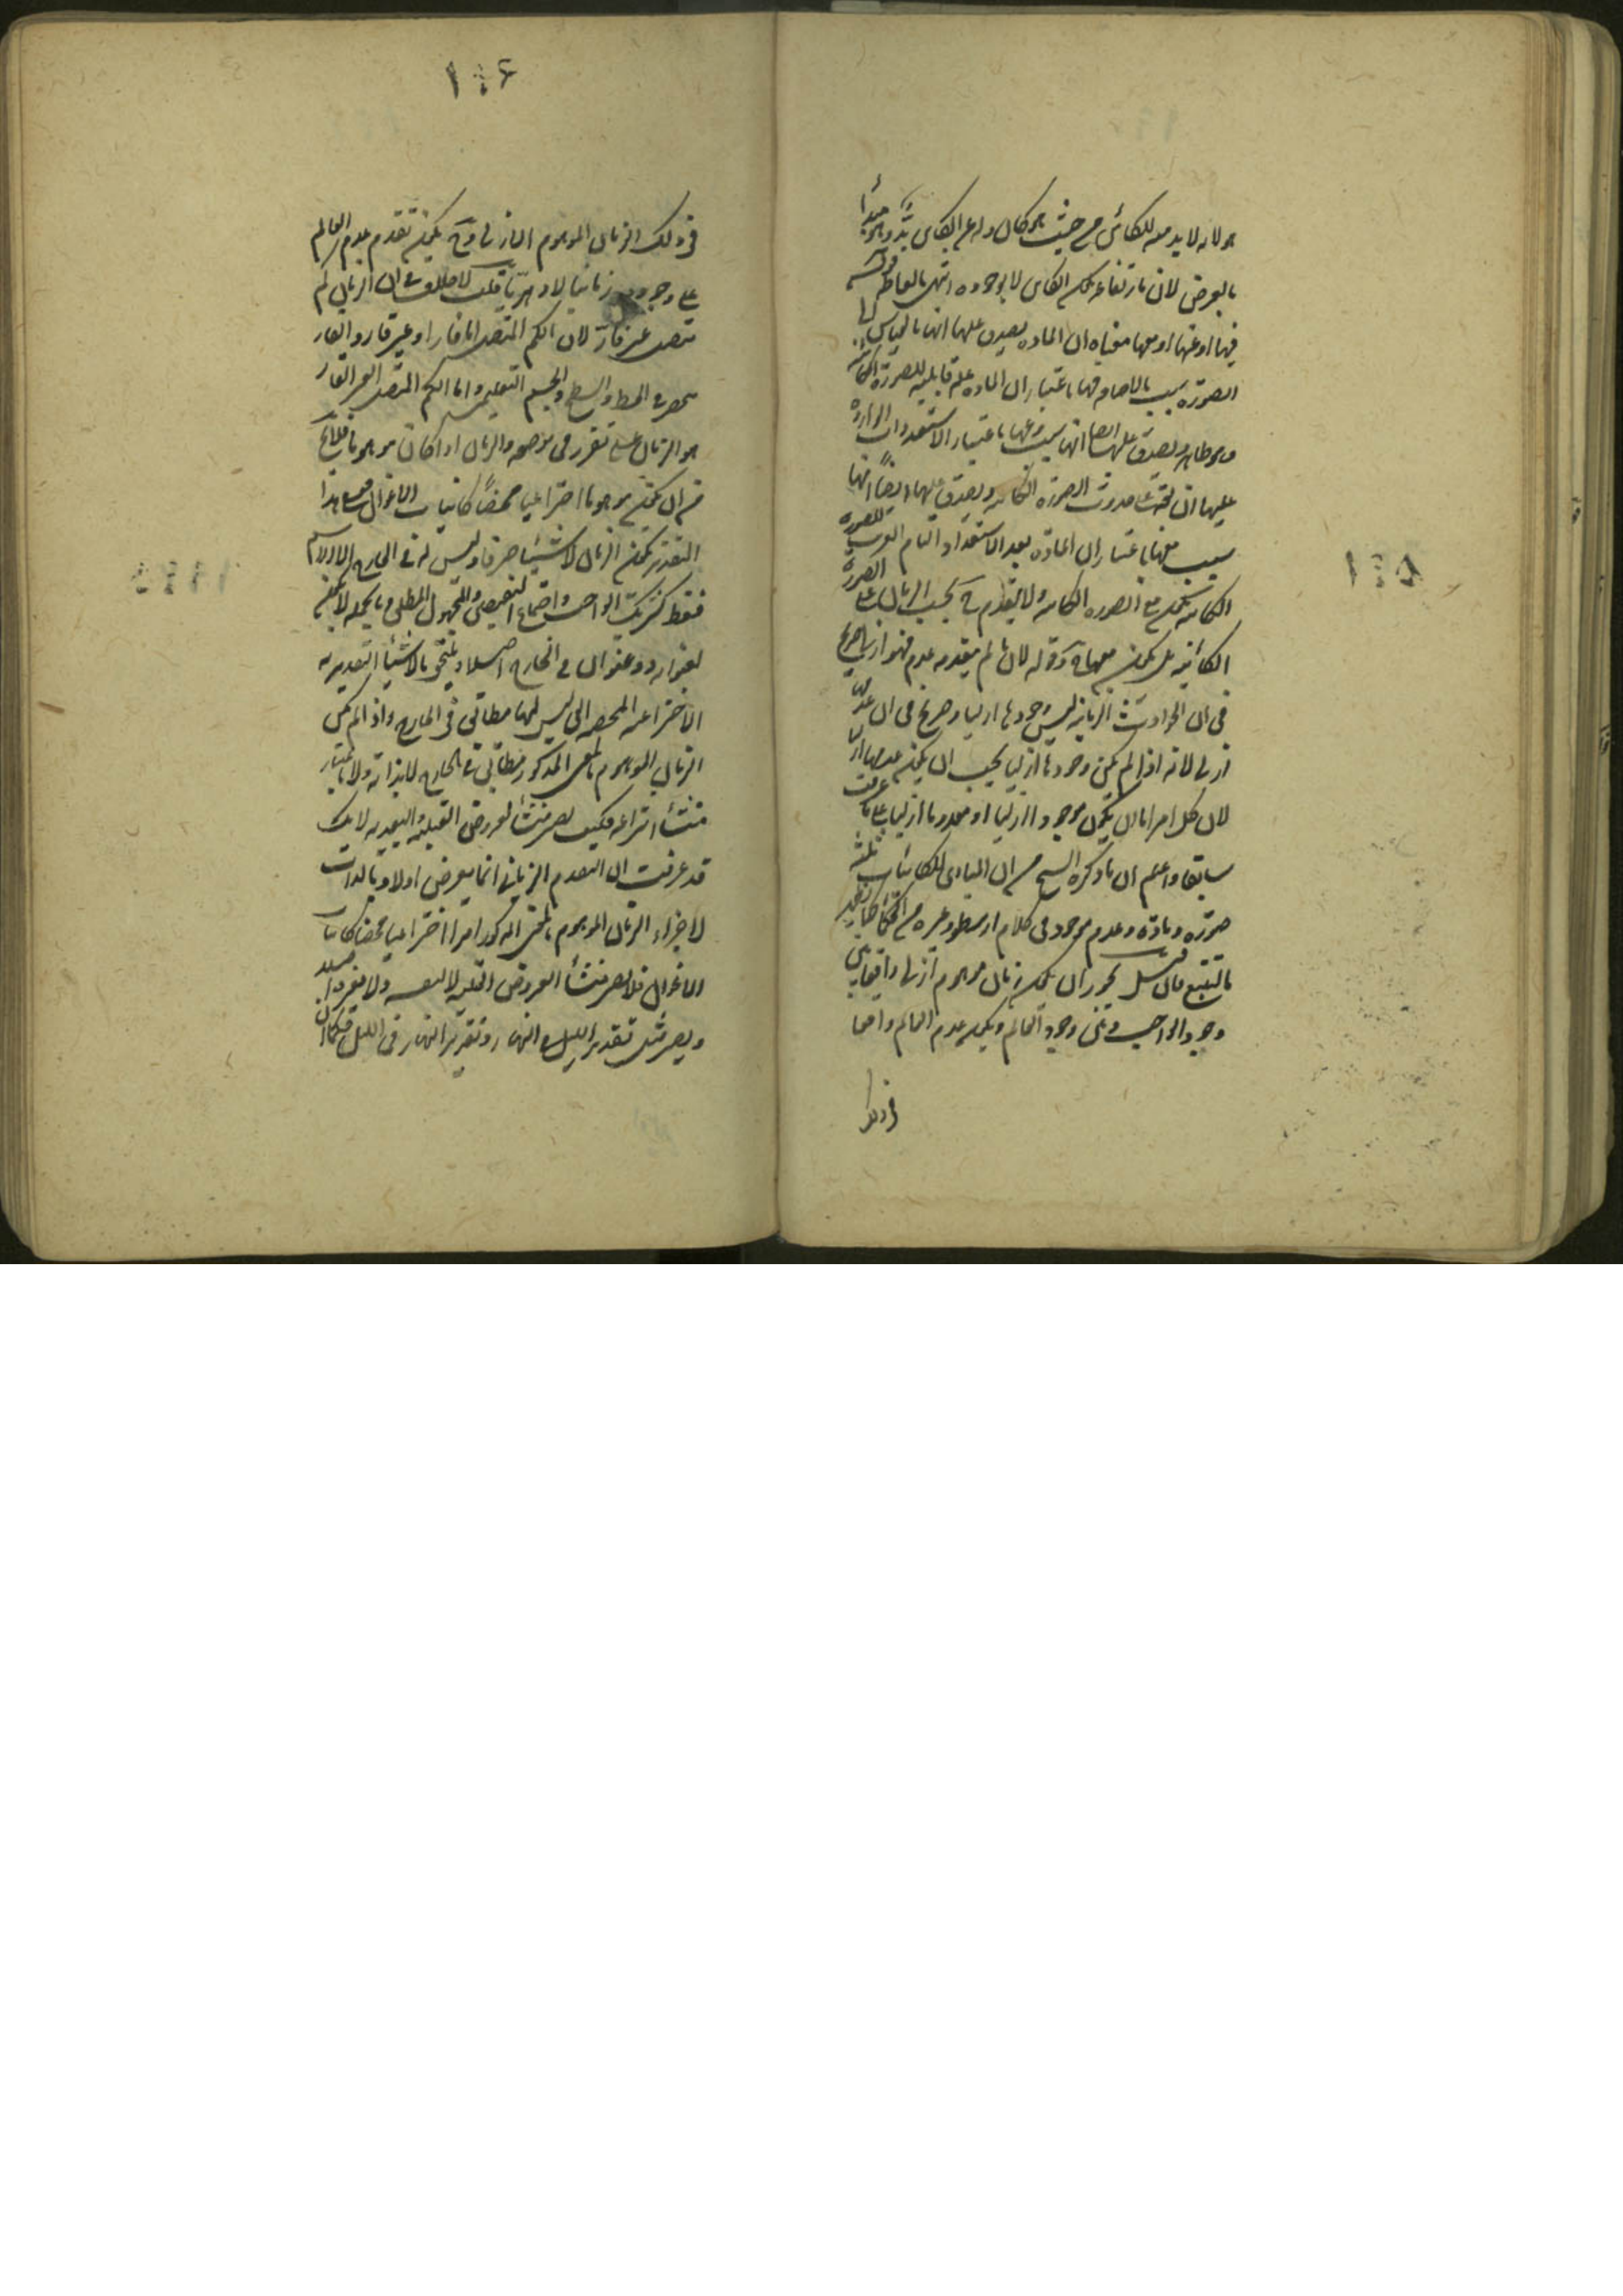 هو لانه لابد منه للكائن من حيث هو كائن وله عن الكائن بد وهو مبدأ
بالعرض لان بارتفاعه يكون الكائن لا بوجوده انتهى بالفاظه قوله
فيها او عنها او معها معناه ان المادة يصدق عليها انها بالقياس الى
الصورة سبب بالاحاد فيها باعتبار ان المادة علة قابلية للصورة الكائنة
وهو ظاهر ويصدق عليها ايضا انها سبب وعنها باعتبار الاستعدادات الواردة
عليها ان تحدث حدوث الصورة الكائنة ويصدق عليها ايضاً انها
سبب معها باعتبار ان المادة بعد الاستعداد التام القريب للصورة
الكائنة تكون مع الصورة الكائنة ولا يتقدم ح بحسب الزمان على الصورة
الكائنة بل يكون معها ح وقوله لان ما لم يتقدمه عدم فهو ازلى صريح
فى ان الحوادث الزمانية ليس وجودها ازليا وصريح فى ان عدمها
ازلى لانه اذا لم يكن وجودها ازليا يجب ان يكون عدمها ازليا
لان كل امر اما ان يكون موجودا ازليا او معدوما ازليا على ما عرفت
سابقا واعلم ان ما ذكره الشيخ من ان المبادى للكائنات ثلثة
صورة ومادة وعدم موجود فى كلام ارسطو وغيره من الحكماء كما يظهر
بالتتبع فان قيل يجوز ان يكون زمان موهوم ازلى واقعا بين
وجود الواجب وبين وجود العالم ويكون عدم العالم واقعا
فى ذلك
١٠٥
١٠٦
فى ذلك الزمان الموهوم الازلى وح يكون تقدم عدم العالم
على وجوده زمانيا لا دهريا قلت لا خلاف فى ان الزمان كم
متصل غير قار لان الكم المتصل اما قار او غير قار والقار
منحصر فى الخط والسطح والجسم التعليمى واما الكم المتصل الغير القار
هو الزمان على ما تقرر فى موضعه والزمان اذا كان موهوما فلا يخ
من ان يكون موهوما اختراعيا محضاً كانياب الاغوال فعلى هذا
التقدير يكون الزمان لا شيئا صرفا وليس له فى الخارج الا الاسم
فقط كشريك الواجب واجتماع النقيضين والمجهول المطلق وبالجملة لا يكون
لغيره ذو عنوان فى الخارج اصلا ويلتحق بالاشياء التقديرية
الاختراعية المحضة التى ليس لها مطابق فى الخارج واذا لم يكن
الزمان الموهوم بالمعنى المذكور مطابق فى الخارج لا بذاته ولا باعتبار
منشأ انتزاعه فكيف يصير منشأ لعروض القبلية والبعدية لانك
قد عرفت ان التقدم الزمانى انما يعرض اولا وبالذات
لاجزاء الزمان الموهوم بالمعنى المذكور امرا اختراعيا محضا كانياب
الاغوال فلا يصير منشأ لعروض القبلية لا لنفسه ولا لغيره
ويصير مثل تقدير الليل فى النهار وتقدير النهار فى الليل فكما ان